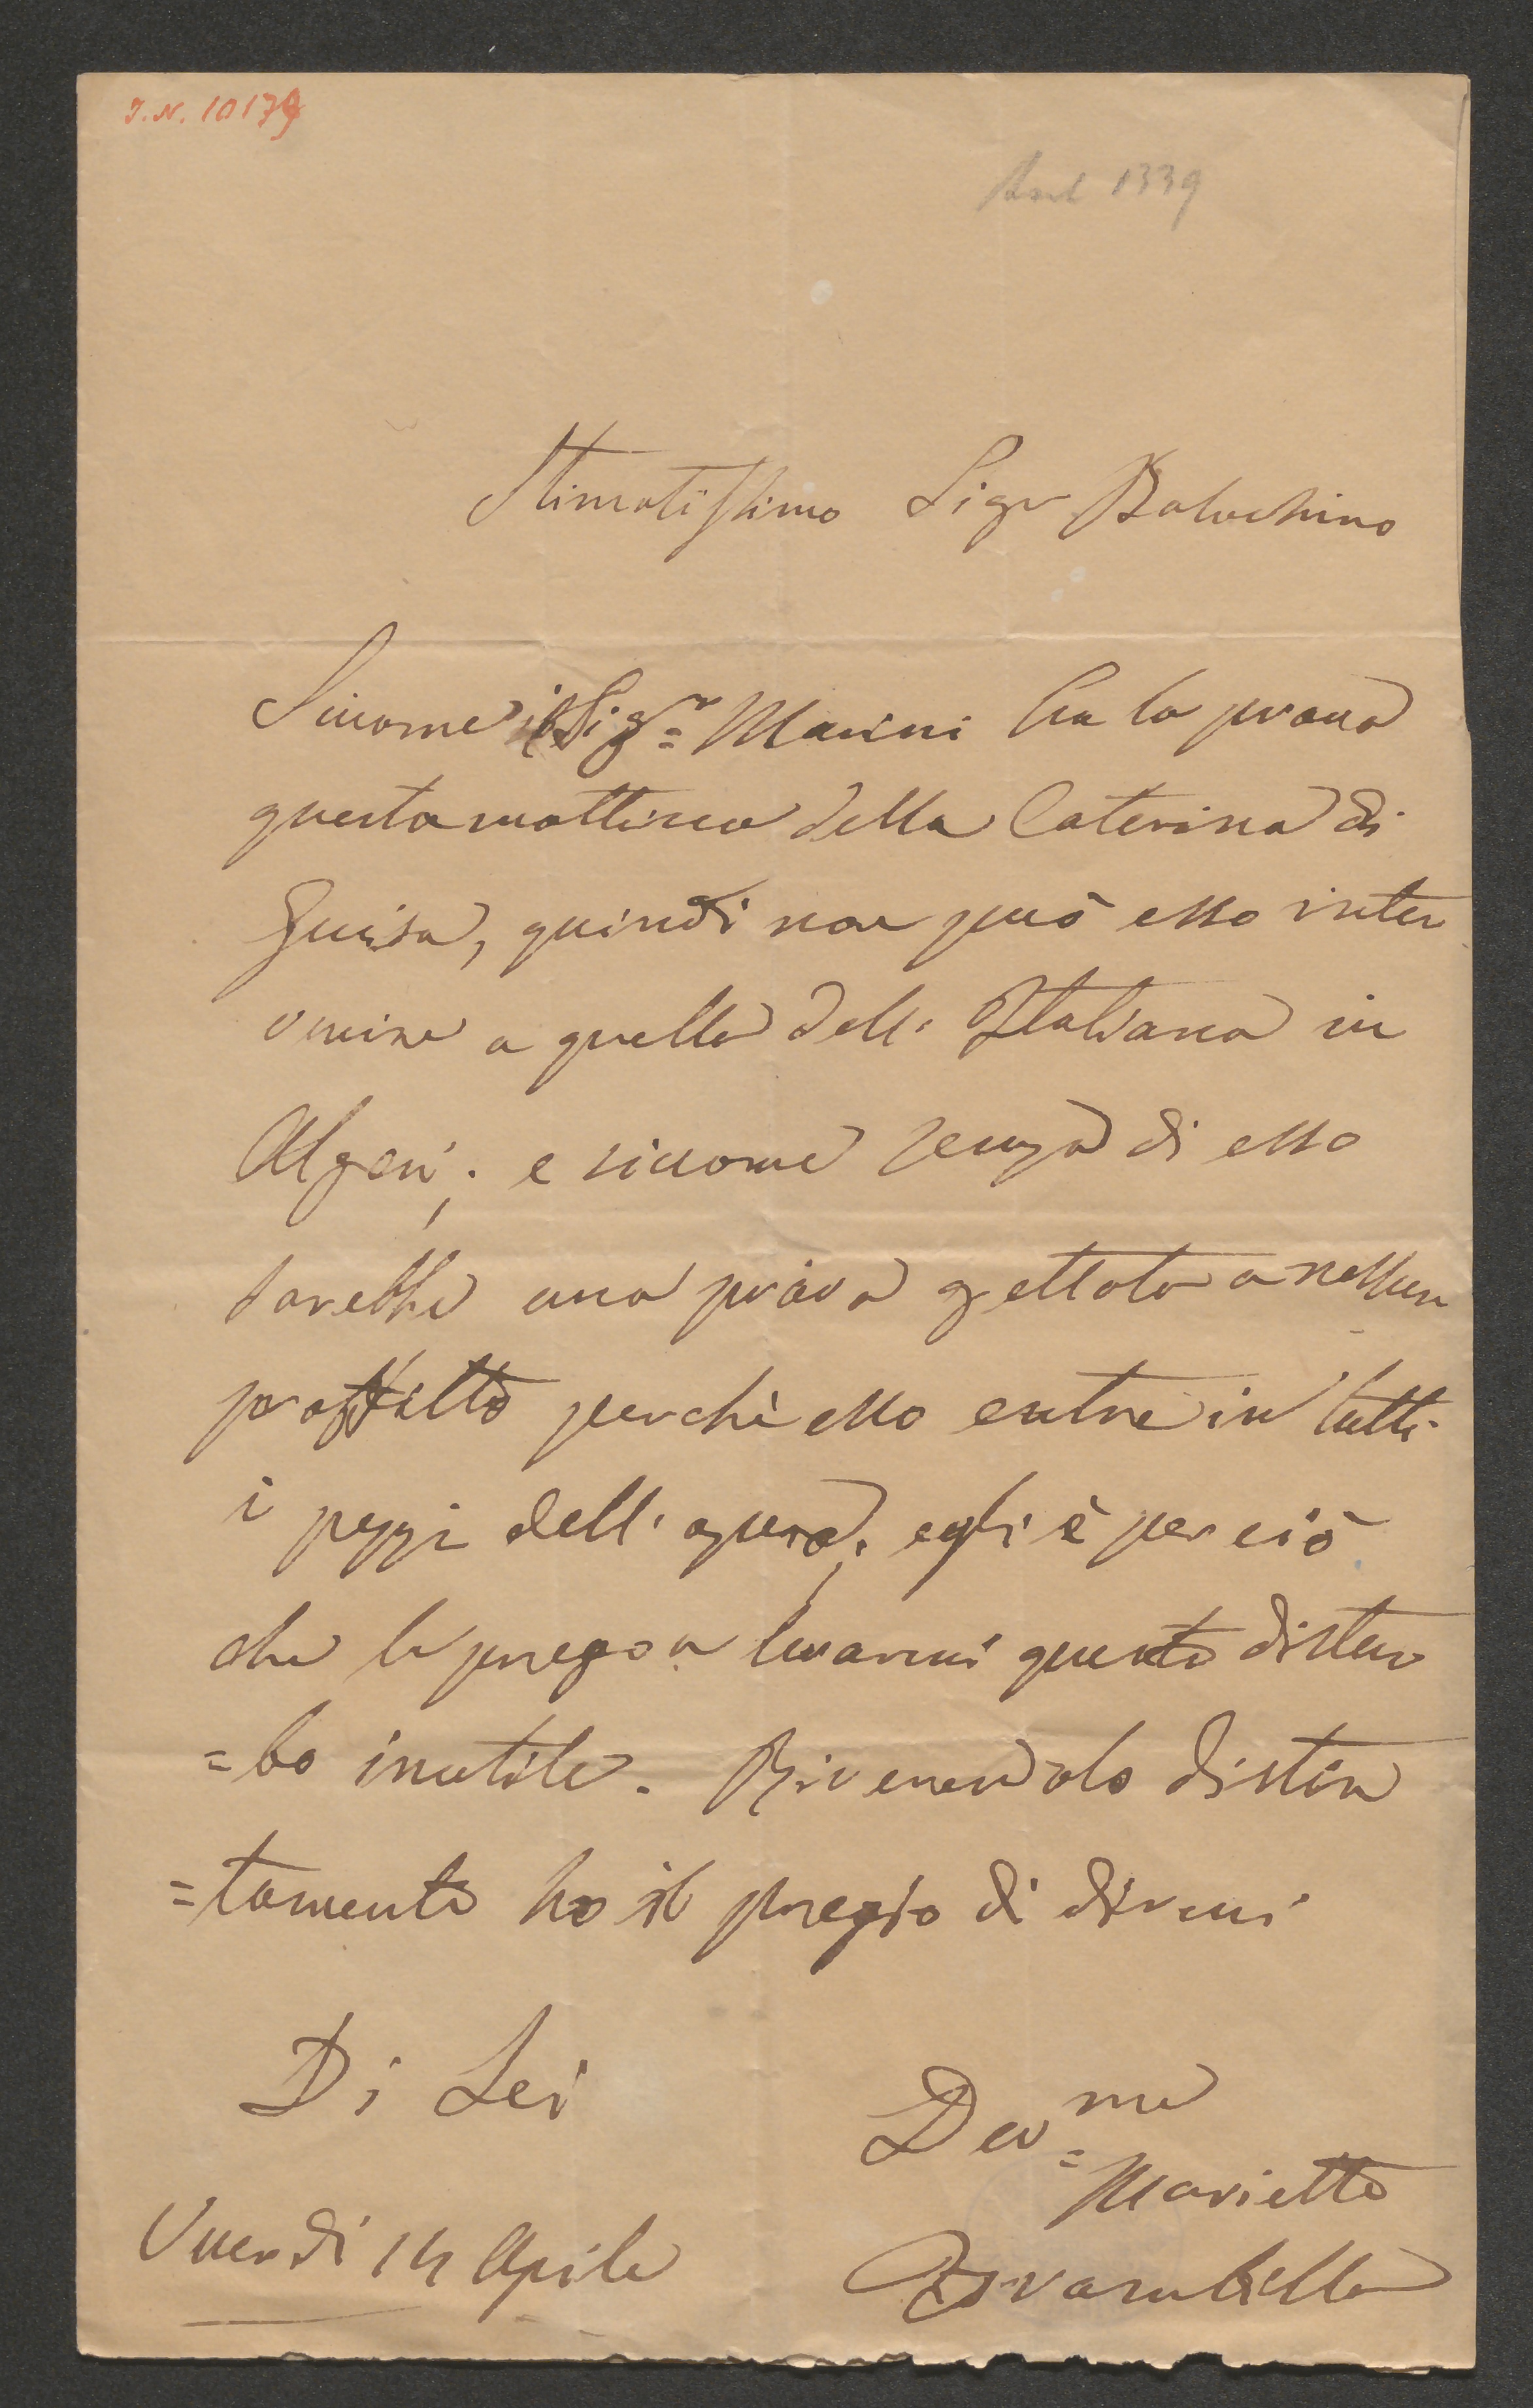 I.N. 10179
1339
Stimatissimo Sigr Balochino
Siccome il Sigr Marini ha la prova
questa mattina della Caterina di
Guisa, quindi non può esso inter
venire a quella dell' Italiana in
Algeri; e siccome senza di esso
sarebbe una prova gettata a nessun
proffitto perchè esso entre in tutti
i pezzi dell' opera; egli è per ciò
che la prego a levarmi questo distur
=bo inutile. Rivenendolo distin
=tamente ho il pregio di dirmi
Di Lei
Dev.me
Marietta
Brambilla
Venerdi 14 Aprile